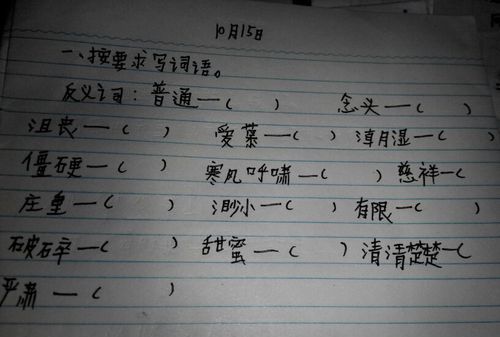 10月15日
一、按要求写词语。
反义词：普通—（ ） 念头—（ ）
沮丧—（ ） 爱慕—（ ） 潮湿—（ ）
僵硬—（ ） 寒风呼啸—（ ） 慈祥—（
庄重—（ ） 渺小—（ ） 有限—（ ）
破碎—（ ） 甜蜜—（ ） 清清楚楚—（
严肃—（ ）